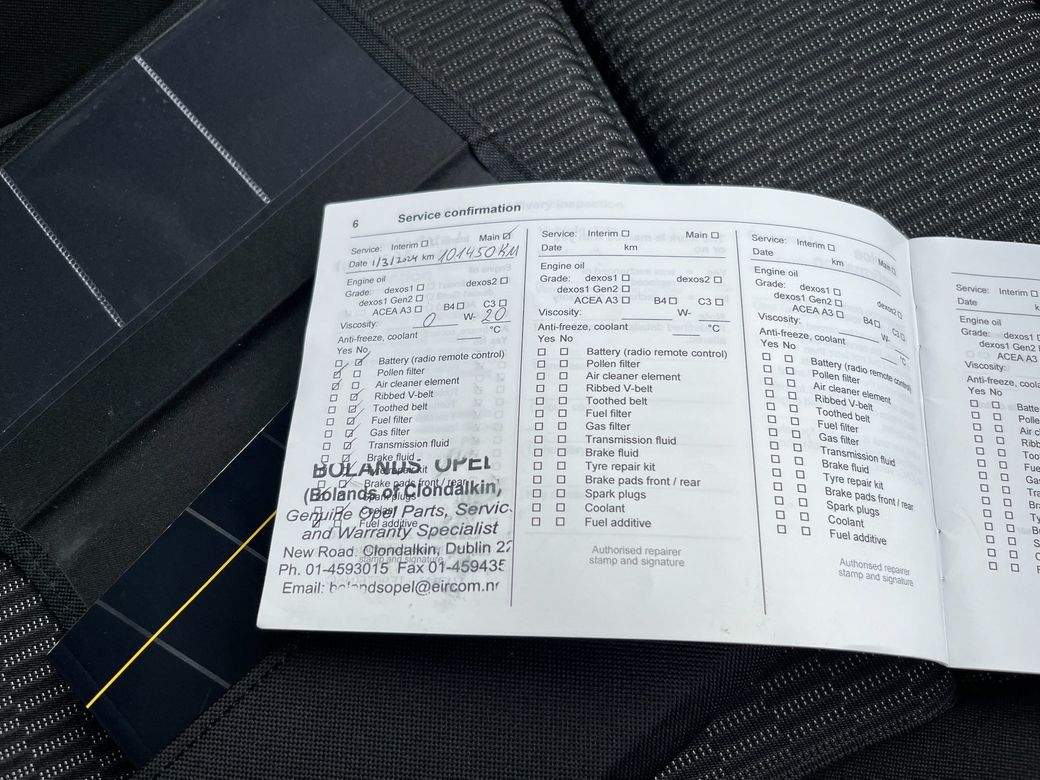 6 Service confirmation
Service: Interim ☐ Main ☑
Date 1/3/2024 km 101450 KM
Engine oil
Grade: dexos1 ☐ dexos2 ☐
dexos1 Gen2 ☐
ACEA A3 ☐ B4 ☐ C3 ☐
Viscosity: 0 W- 20
Anti-freeze, coolant °C
Yes No
Battery (radio remote control)
Pollen filter
Air cleaner element
Ribbed V-belt
Toothed belt
Fuel filter
Gas filter
Transmission fluid
Brake fluid
Brake pads front / rear
Fuel additive
BOLANDS OPEL
(Bolands of Clondalkin,
Genuine Opel Parts, Servic
and Warranty Specialist
New Road Clondalkin, Dublin 22
Ph. 01-4593015 Fax 01-459435
Email: bolandsopel@eircom.n
Service: Interim ☐ Main ☐
Date km
Engine oil
Grade: dexos1 ☐ dexos2 ☐
dexos1 Gen2 ☐
ACEA A3 ☐ B4 ☐ C3 ☐
Viscosity: W-
Anti-freeze, coolant °C
Yes No
☐ ☐ Battery (radio remote control)
☐ ☐ Pollen filter
☐ ☐ Air cleaner element
☐ ☐ Ribbed V-belt
☐ ☐ Toothed belt
☐ ☐ Fuel filter
☐ ☐ Gas filter
☐ ☐ Transmission fluid
☐ ☐ Brake fluid
☐ ☐ Tyre repair kit
☐ ☐ Brake pads front / rear
☐ ☐ Spark plugs
☐ ☐ Coolant
☐ ☐ Fuel additive
Authorised repairer
stamp and signature
Service: Interim ☐ Main ☐
Date km
Engine oil
Grade: dexos1 ☐ dexos2 ☐
dexos1 Gen2 ☐
ACEA A3 ☐ B4 ☐ C3 ☐
Viscosity: W-
Anti-freeze, coolant °C
Yes No
☐ ☐ Battery (radio remote control)
☐ ☐ Pollen filter
☐ ☐ Air cleaner element
☐ ☐ Ribbed V-belt
☐ ☐ Toothed belt
☐ ☐ Fuel filter
☐ ☐ Gas filter
☐ ☐ Transmission fluid
☐ ☐ Brake fluid
☐ ☐ Tyre repair kit
☐ ☐ Brake pads front / rear
☐ ☐ Spark plugs
☐ ☐ Coolant
☐ ☐ Fuel additive
Authorised repairer
stamp and signature
Service: Interim ☐
Date k
Engine oil
Grade: dexos1 ☐
dexos1 Gen2
ACEA A3
Viscosity:
Anti-freeze, coola
Yes No
☐ ☐ Batte
☐ ☐ Polle
☐ ☐ Air cl
☐ ☐ Ribb
☐ ☐ Too
☐ ☐ Fue
☐ ☐ Ga
☐ ☐ Tra
☐ ☐ Br
☐ ☐ Ty